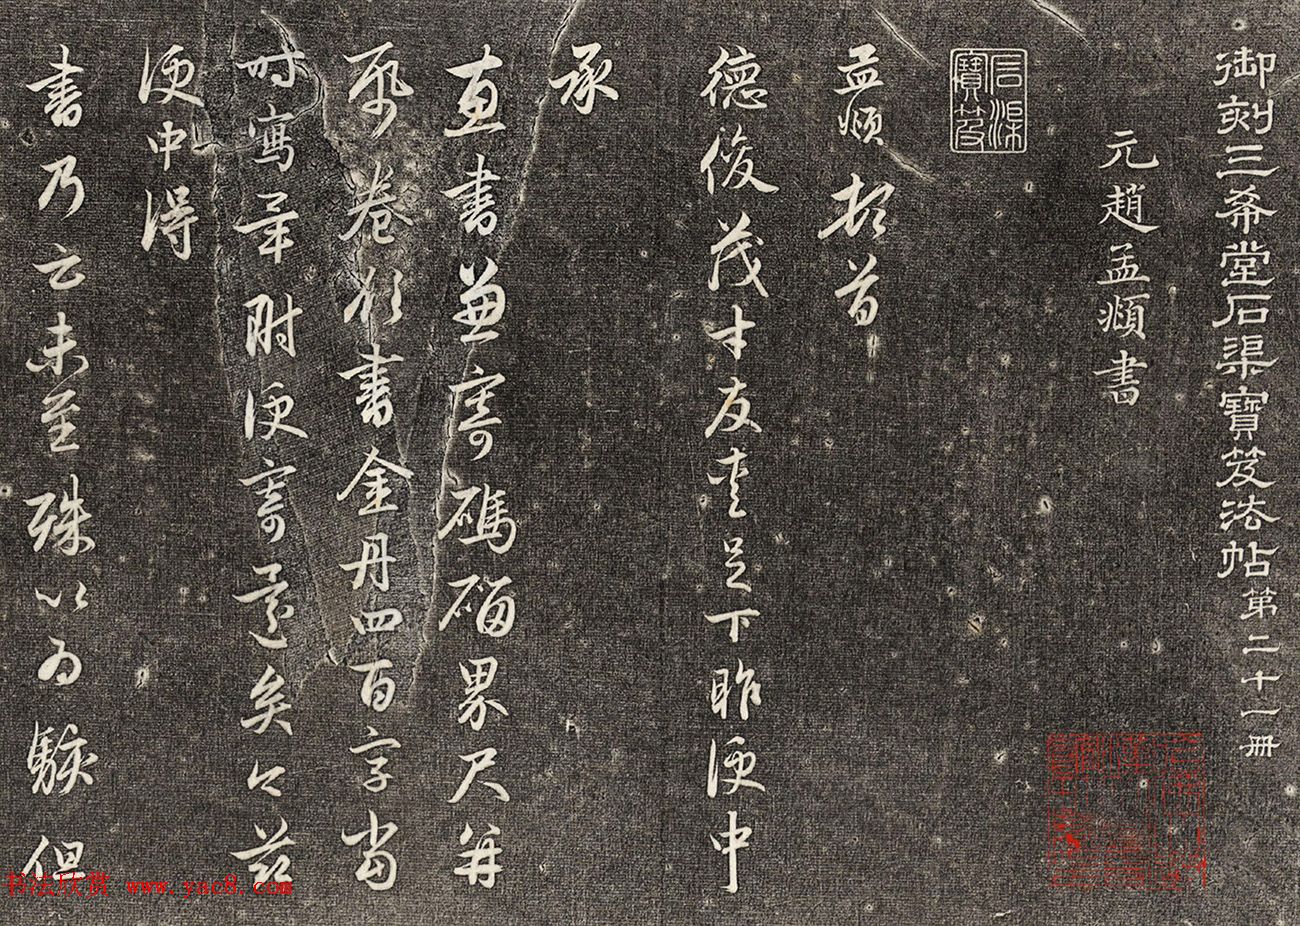 御刻三希堂石渠寶笈法帖第二十一冊
元趙孟頫書
石渠
寶笈
孟頫頓首
德俊茂才友愛足下昨便中
承
惠書兼寄碼碯界尺并
紙卷欲書金丹四百字當
時寫畢附便寄還矣今茲
便中得
書乃云未至殊以為駭但
书法欣赏 www.yac8.com